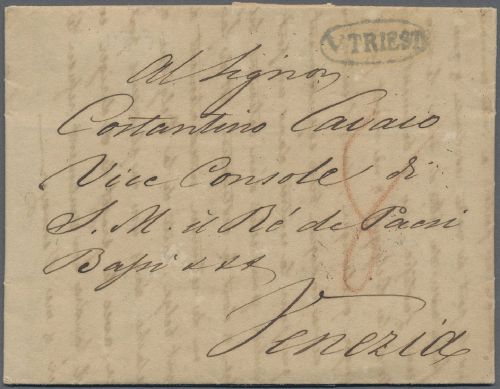 V. TRIEST
Al Signor
Costantino Cavaco
Vice Console di
S. M. il Ré de Paesi
Bassi xxx
8
Venezia